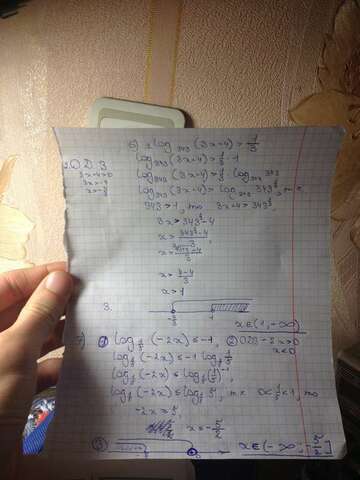 6) 1 log₃₄₃ (3x-4) > 1/3
О D З
log₃₄₃ (3x-4) > 1/3 · 1
3x-4>0
log₃₄₃ (3x-4) > 1/3 · log₃₄₃ 343
log₃₄₃ (3x-4) > log₃₄₃ 343^(1/3), т.к
343 > 1, то 3x-4 > 343^(1/3)
3x > 343^(1/3) -4
x > (343^(1/3) -4)/3,
x > 1
3.
x∈(1, -∞)
7) ① log₁/₅ (-2x) ≤ -1, ② ОДЗ -2x>0
x<0
log₁/₅ (-2x) ≤ -1 log₁/₅ 1/5
log₁/₅ (-2x) ≤ log₁/₅ (1/5)⁻¹,
log₁/₅ (-2x) ≤ log₁/₅ 5, т к 0<1/5<1, то
-2x ≥ 5,
x = -5/2
③ x∈(-∞; -5/2]